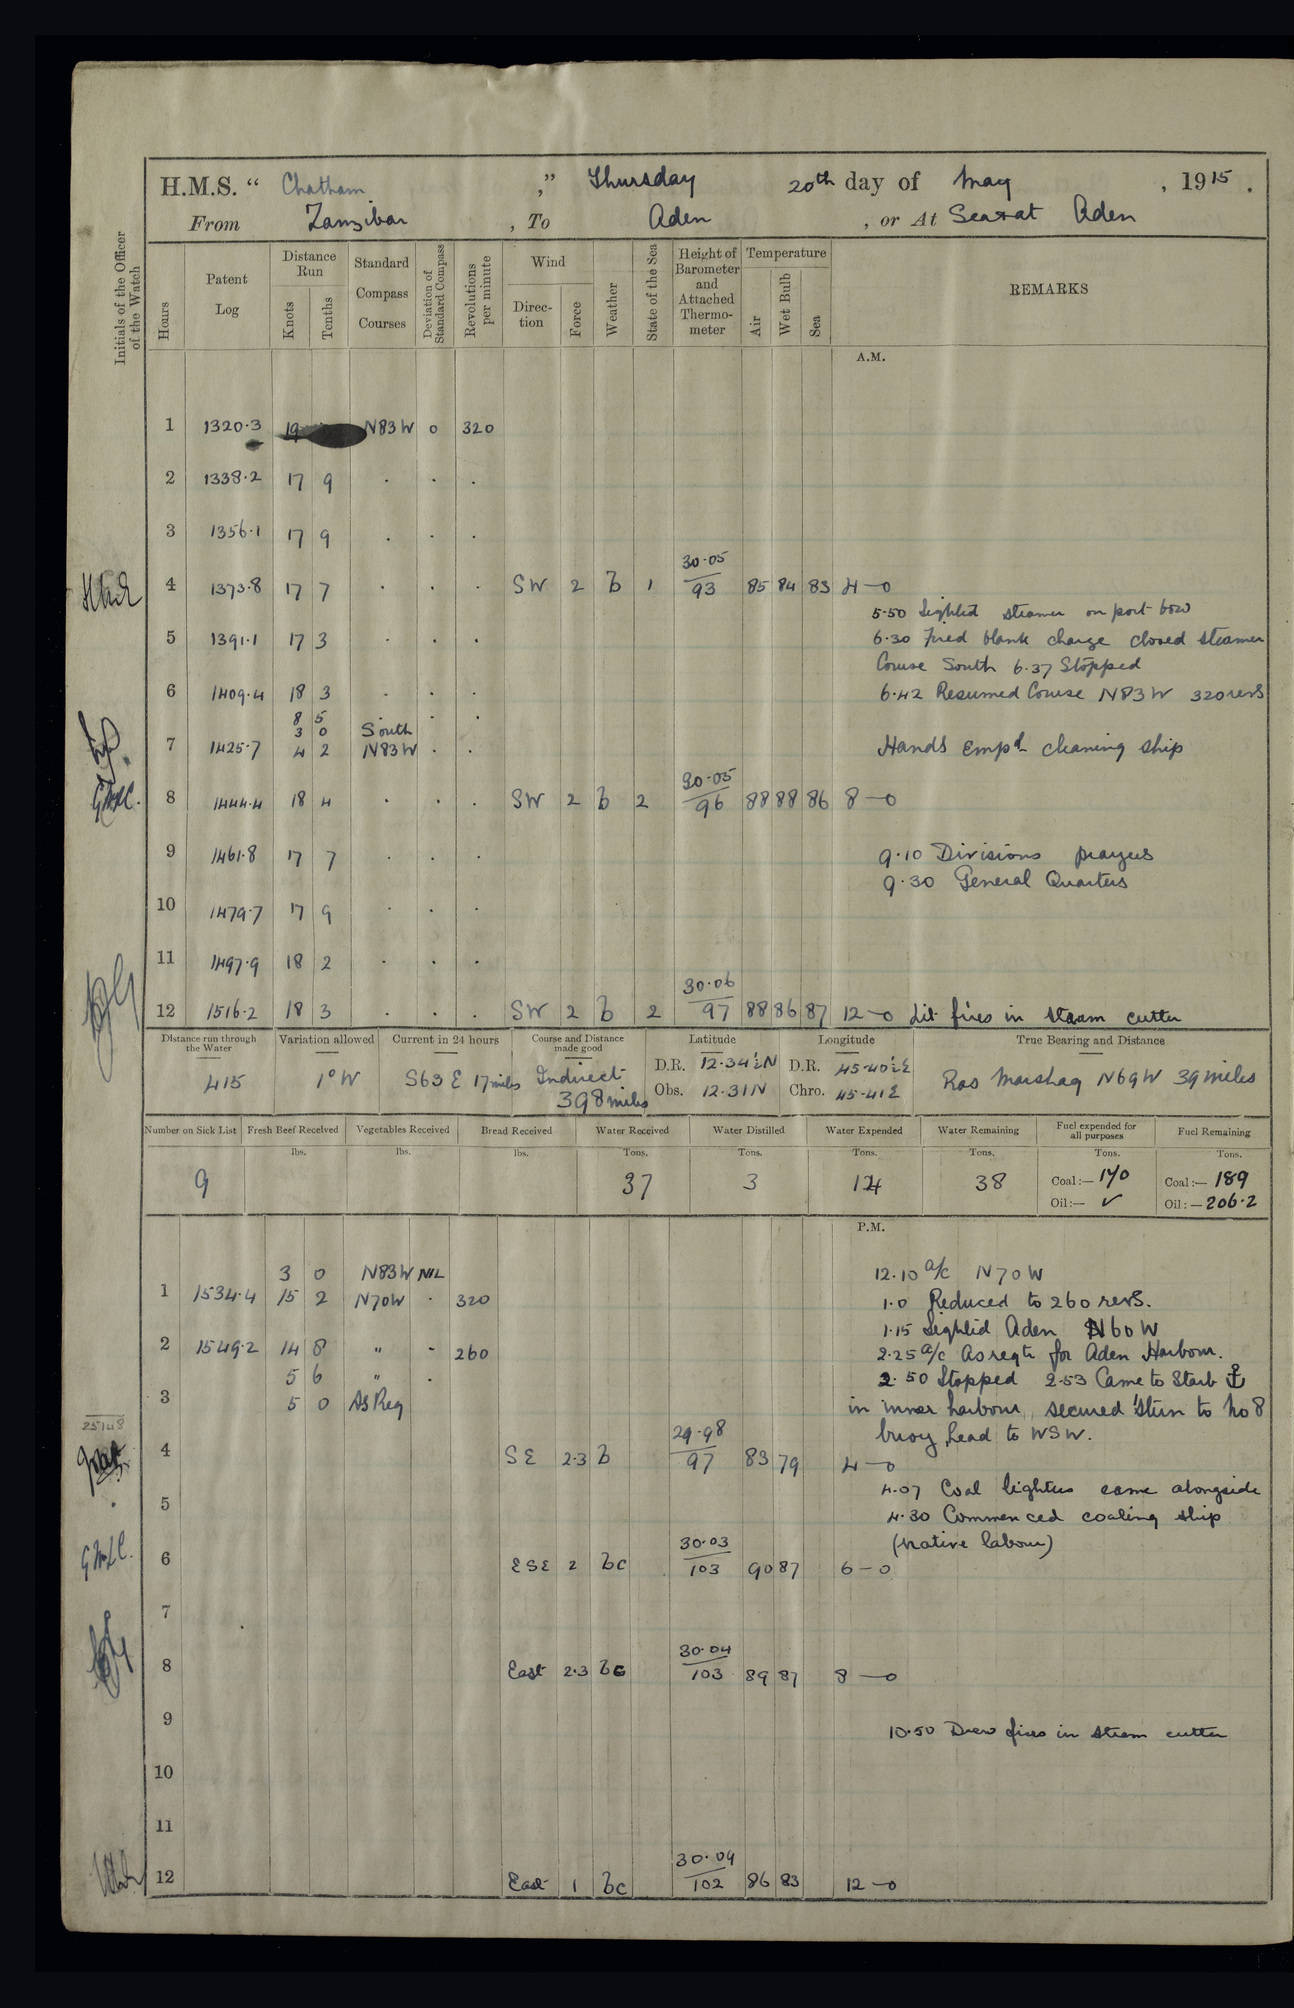 H.M.S. “ Chatham ,” Thursday 20th day of May , 1915 .
From Zanzibar , To Aden , or At Sea & at Aden
Initials of the Officer of the Watch
Hours
Patent Log
Distance Run
Knots
Tenths
Standard Compass Courses
Deviation of Standard Compass
Revolutions per minute
Wind
Direc-tion
Force
Weather
State of the Sea
Height of Barometer and Attached Thermo-meter
Temperature
Air
Wet Bulb
Sea
REMARKS
A.M.
1 1320·3 19 N83W 0 320
2 1338·2 17 9 · · ·
3 1356·1 17 9 · · ·
4 1373·8 17 7 · · · SW 2 b 1 30·05 93 85 84 83 4—0
5·50 Sighted steamer on port bow
5 1391·1 17 3 · · · 6·30 Fired blank charge closed steamer
Course South 6·37 Stopped
6 1409·4 18 3 · · · 6·42 Resumed Course N83W 320 revs
8 5 · ·
3 0 South
7 1425·7 4 2 N83W · · Hands empd cleaning ship
8 1444·4 18 4 · · · SW 2 b 2 30·05 96 88 88 86 8—0
9 1461·8 17 7 · · · 9·10 Divisions prayers
9·30 General Quarters
10 1479·7 17 9 · · ·
11 1497·9 18 2 · · ·
12 1516·2 18 3 · · · SW 2 b 2 30·06 97 88 86 87 12—0 Lit fires in steam cutter
Distance run through the Water
Variation allowed
Current in 24 hours
Course and Distance made good
Latitude
Longitude
True Bearing and Distance
415 1° W S63 E 17 miles Indirect 398 miles
D.R. 12·34½N D.R. 45·40½E
Obs. 12·31N Chro. 45·41E
Ras Marshag N69W 39 miles
Number on Sick List Fresh Beef Received Vegetables Received Bread Received Water Received Water Distilled Water Expended Water Remaining Fuel expended for all purposes Fuel Remaining
lbs. lbs. lbs. Tons. Tons. Tons. Tons. Tons. Tons.
9 37 3 14 38 Coal:— 170 Coal:— 189
Oil:— ✓ Oil:— 206·2
P.M.
3 0 N83W NIL 12·10 a/c N70W
1 1534·4 15 2 N70W · 320 1·0 Reduced to 260 revs.
1·15 Sighted Aden N60W
2 1549·2 14 8 " · 260 2·25 a/c As reqte for Aden Harbour.
5 6 " · 2·50 Stopped 2·53 Came to Starb ⚓
3 5 0 As Req in inner harbour, secured stern to No 8
buoy, head to WSW.
25148
4 SE 2·3 b 29·98 97 83 79 4—0
4·07 Coal lighters came alongside
5 4·30 Commenced coaling ship
(native labour)
G.M.L.C. 6 ESE 2 bc 30·03 103 90 87 6—0
7
8 East 2·3 bc 30·04 103 89 87 8—0
9 10·50 Drew fires in steam cutter
10
11
12 East 1 bc 30·04 102 86 83 12—0